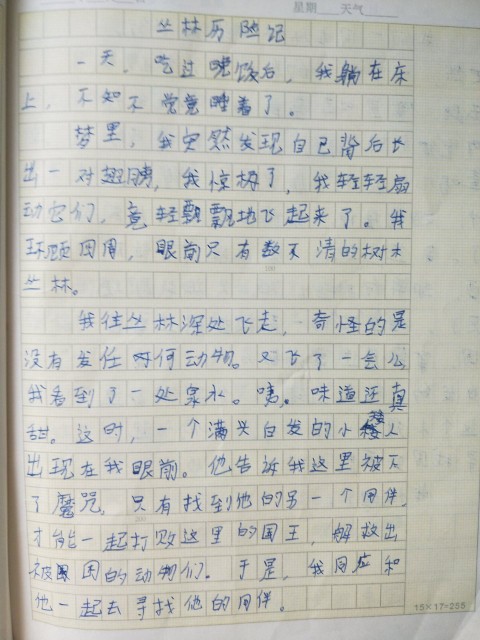 星期 天气
丛林历险记
一天，吃过晚饭后，我躺在床
上，不知不觉竟睡着了。
梦里，我突然发现自己背后长
出一对翅膀，我惊讶了，我轻轻扇
动它们，竟轻飘飘地飞起来了。我
环顾四周，眼前只有数不清的树木
丛林。
我往丛林深处飞走，奇怪的是
没有发任何动物。又飞了一会么
我看到了一处泉水。嘻。味道还真
甜。这时，一个满头白发的小矮人
出现在我眼前。他告诉我这里被下
了魔咒，只有找到他的另一个同伴，
才能一起打败这里的国王，解救出
被困的动物们。于是，我同应和
他一起去寻找他的同伴。
15×17=255